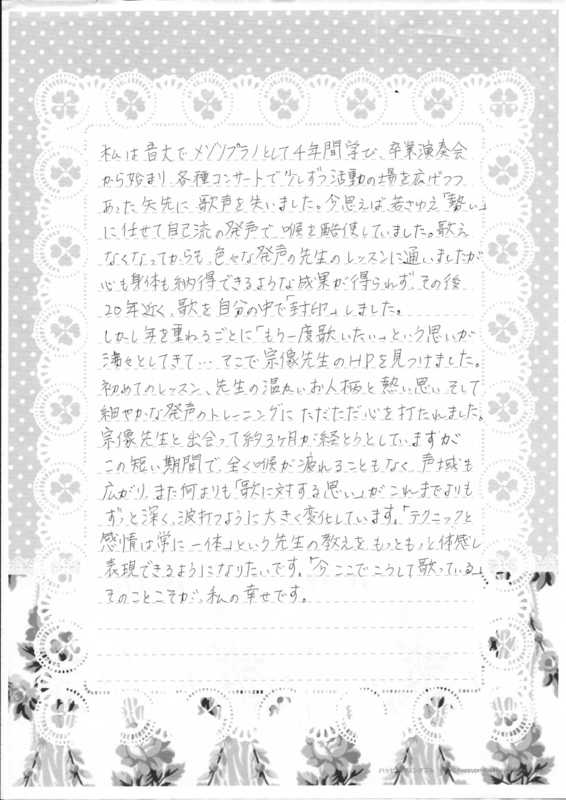 私は音大でメゾソプラノとして4年間学び、卒業演奏会
から始まり、各種コンサートで少しずつ活動の場を広げつつ
あった矢先に、歌声を失いました。今思えば、若さゆえ「勢い」
に任せて自己流の発声で、喉を酷使していました。歌え
なくなってからも、色々な発声の先生のレッスンに通いましたが
心も身体も納得できるような成果が得られず、その後
20年近く、歌を自分の中で「封印」しました。
しかし年を重ねるごとに「もう一度歌いたい」という思いが
沸々としてきて… そこで宗像先生のHPを見つけました。
初めてのレッスン、先生の温かいお人柄と熱い思い そして
細やかな発声のトレーニングに ただただ心を打たれました。
宗像先生と出会って約3ヶ月が経とうとしていますが
この短い期間で、全く喉が疲れることもなく 声域も
広がり、また何よりも「歌に対する思い」が これまでよりも
ずっと深く、波打つように大きく変化しています。「テクニックと
感情は常に一体」という先生の教えを もっともっと体感し
表現できるようになりたいです。「今 ここでこうして歌っている」
そのことこそが、私の幸せです。